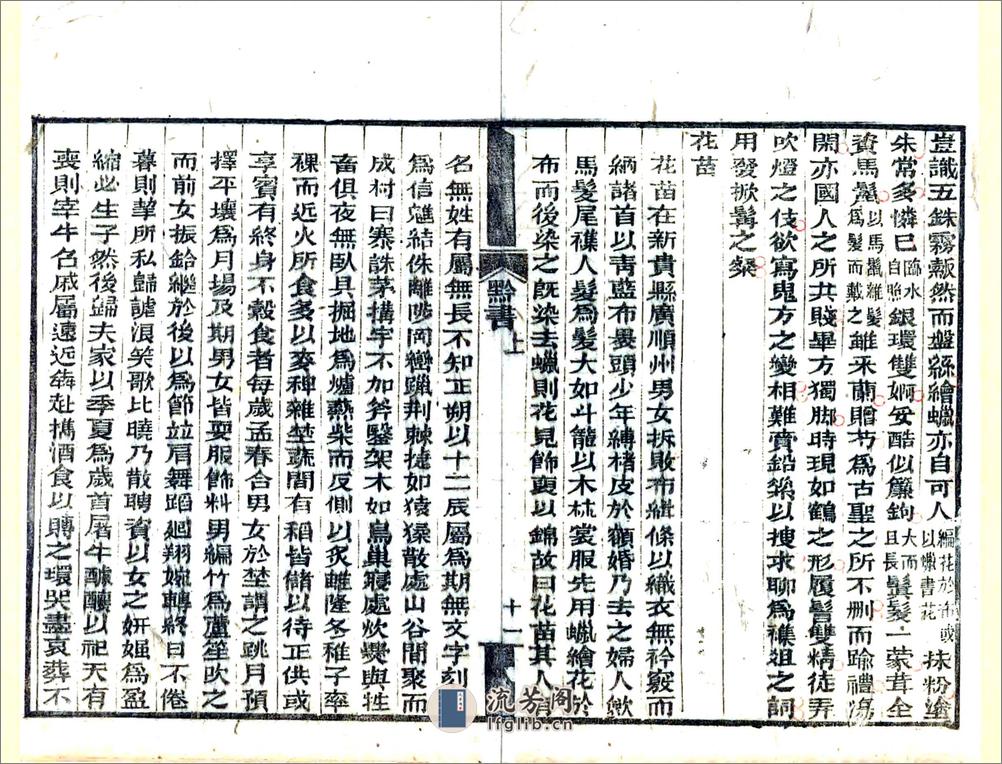 豈識五銖霧縠然而盤絲繪蠟亦自可人編花於布或以蠟書花抹粉塗
朱常多憐已臨水自照銀環雙婀安酷似簾鉤大而且長鬒髮一蒙茸全
資馬鬣以馬鬣雜髮為髮而戴之雖采蘭贈芍為古聖之所不刪而踰禮
閑亦國人之所共賤畢方獨脚時現如鶴之形履髻雙精徒弄
吹燈之伎欲寫鬼方之變相難賫鉛槧以搜求聊為襍俎之詞
用發掀髯之粲
花苗
花苗在新貴縣廣順州男女拆敗布緝條以織衣無衿竅而
納諸首以靑藍布褁頭少年縛楮皮於額婚乃去之婦人斂
馬鬃尾襍人髮為髲大如斗籠以木梳裳服先用蠟繪花於
布而後染之旣染去蠟則花見飾袖以錦故曰花苗其人有
黔書
上
十一
名無姓有屬無長不知正朔以十二辰屬為期無文字刻木
為信魋結侏離陟岡巒躐荆棘捷如猿猱散處山谷間聚而
成村曰寨誅茅搆宇不加斧鑿架木如鳥巢寢處炊爨與牲
畜俱夜無臥具掘地為爐爇柴而反側以炙雖隆冬稚子率
裸而近火所食多以麥稗雜埜蔬間有稻皆儲以待正供或
享賓有終身不穀食者每歲孟春合男女於埜謂之跳月預
擇平壤為月場及期男女皆更服飾粧男編竹為蘆笙吹之
而前女振鈴繼於後以為節竝肩舞蹈廻翔婉轉終日不倦
暮則挈所私歸謔浪笑歌比曉乃散聘資以女之妍媸為盈
縮必生子然後歸夫家以季夏為歲首屠牛釃釀以祀天有
喪則宰牛召戚屬遠近犇赴攜酒食以賻之環哭盡哀葬不
流芳阁
lfglib.cn